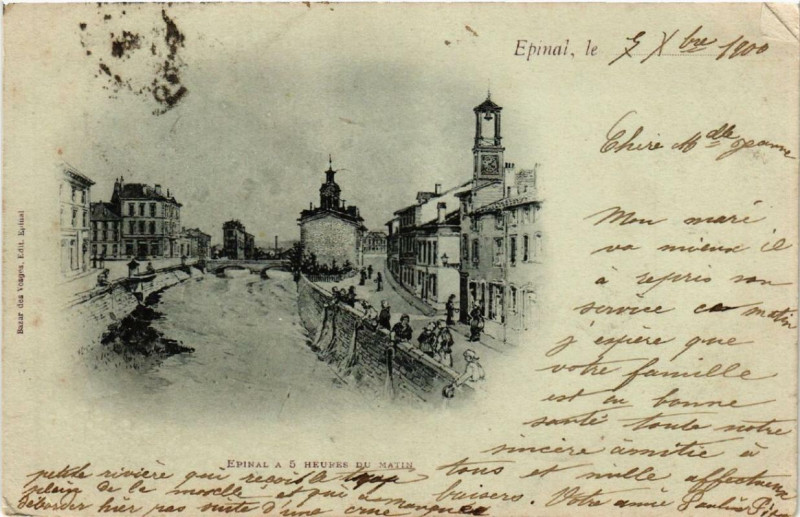 Epinal, le 7 Xbre 1900
Chère Mdlle Jeanne
Mon mari
va mieux il
à repris son
service ce matin
j'espère que
votre famille
est en bonne
santé toute notre
sincère amitie à
tous et mille affectueux
baisers. Votre amie Pauline
EPINAL A 5 HEURES DU MATIN
petite rivière qui reçoit le trop
plein de la moselle et qui a manqué
déborder hier par suite d'une crue
Bazar des Vosges, Edit. Epinal